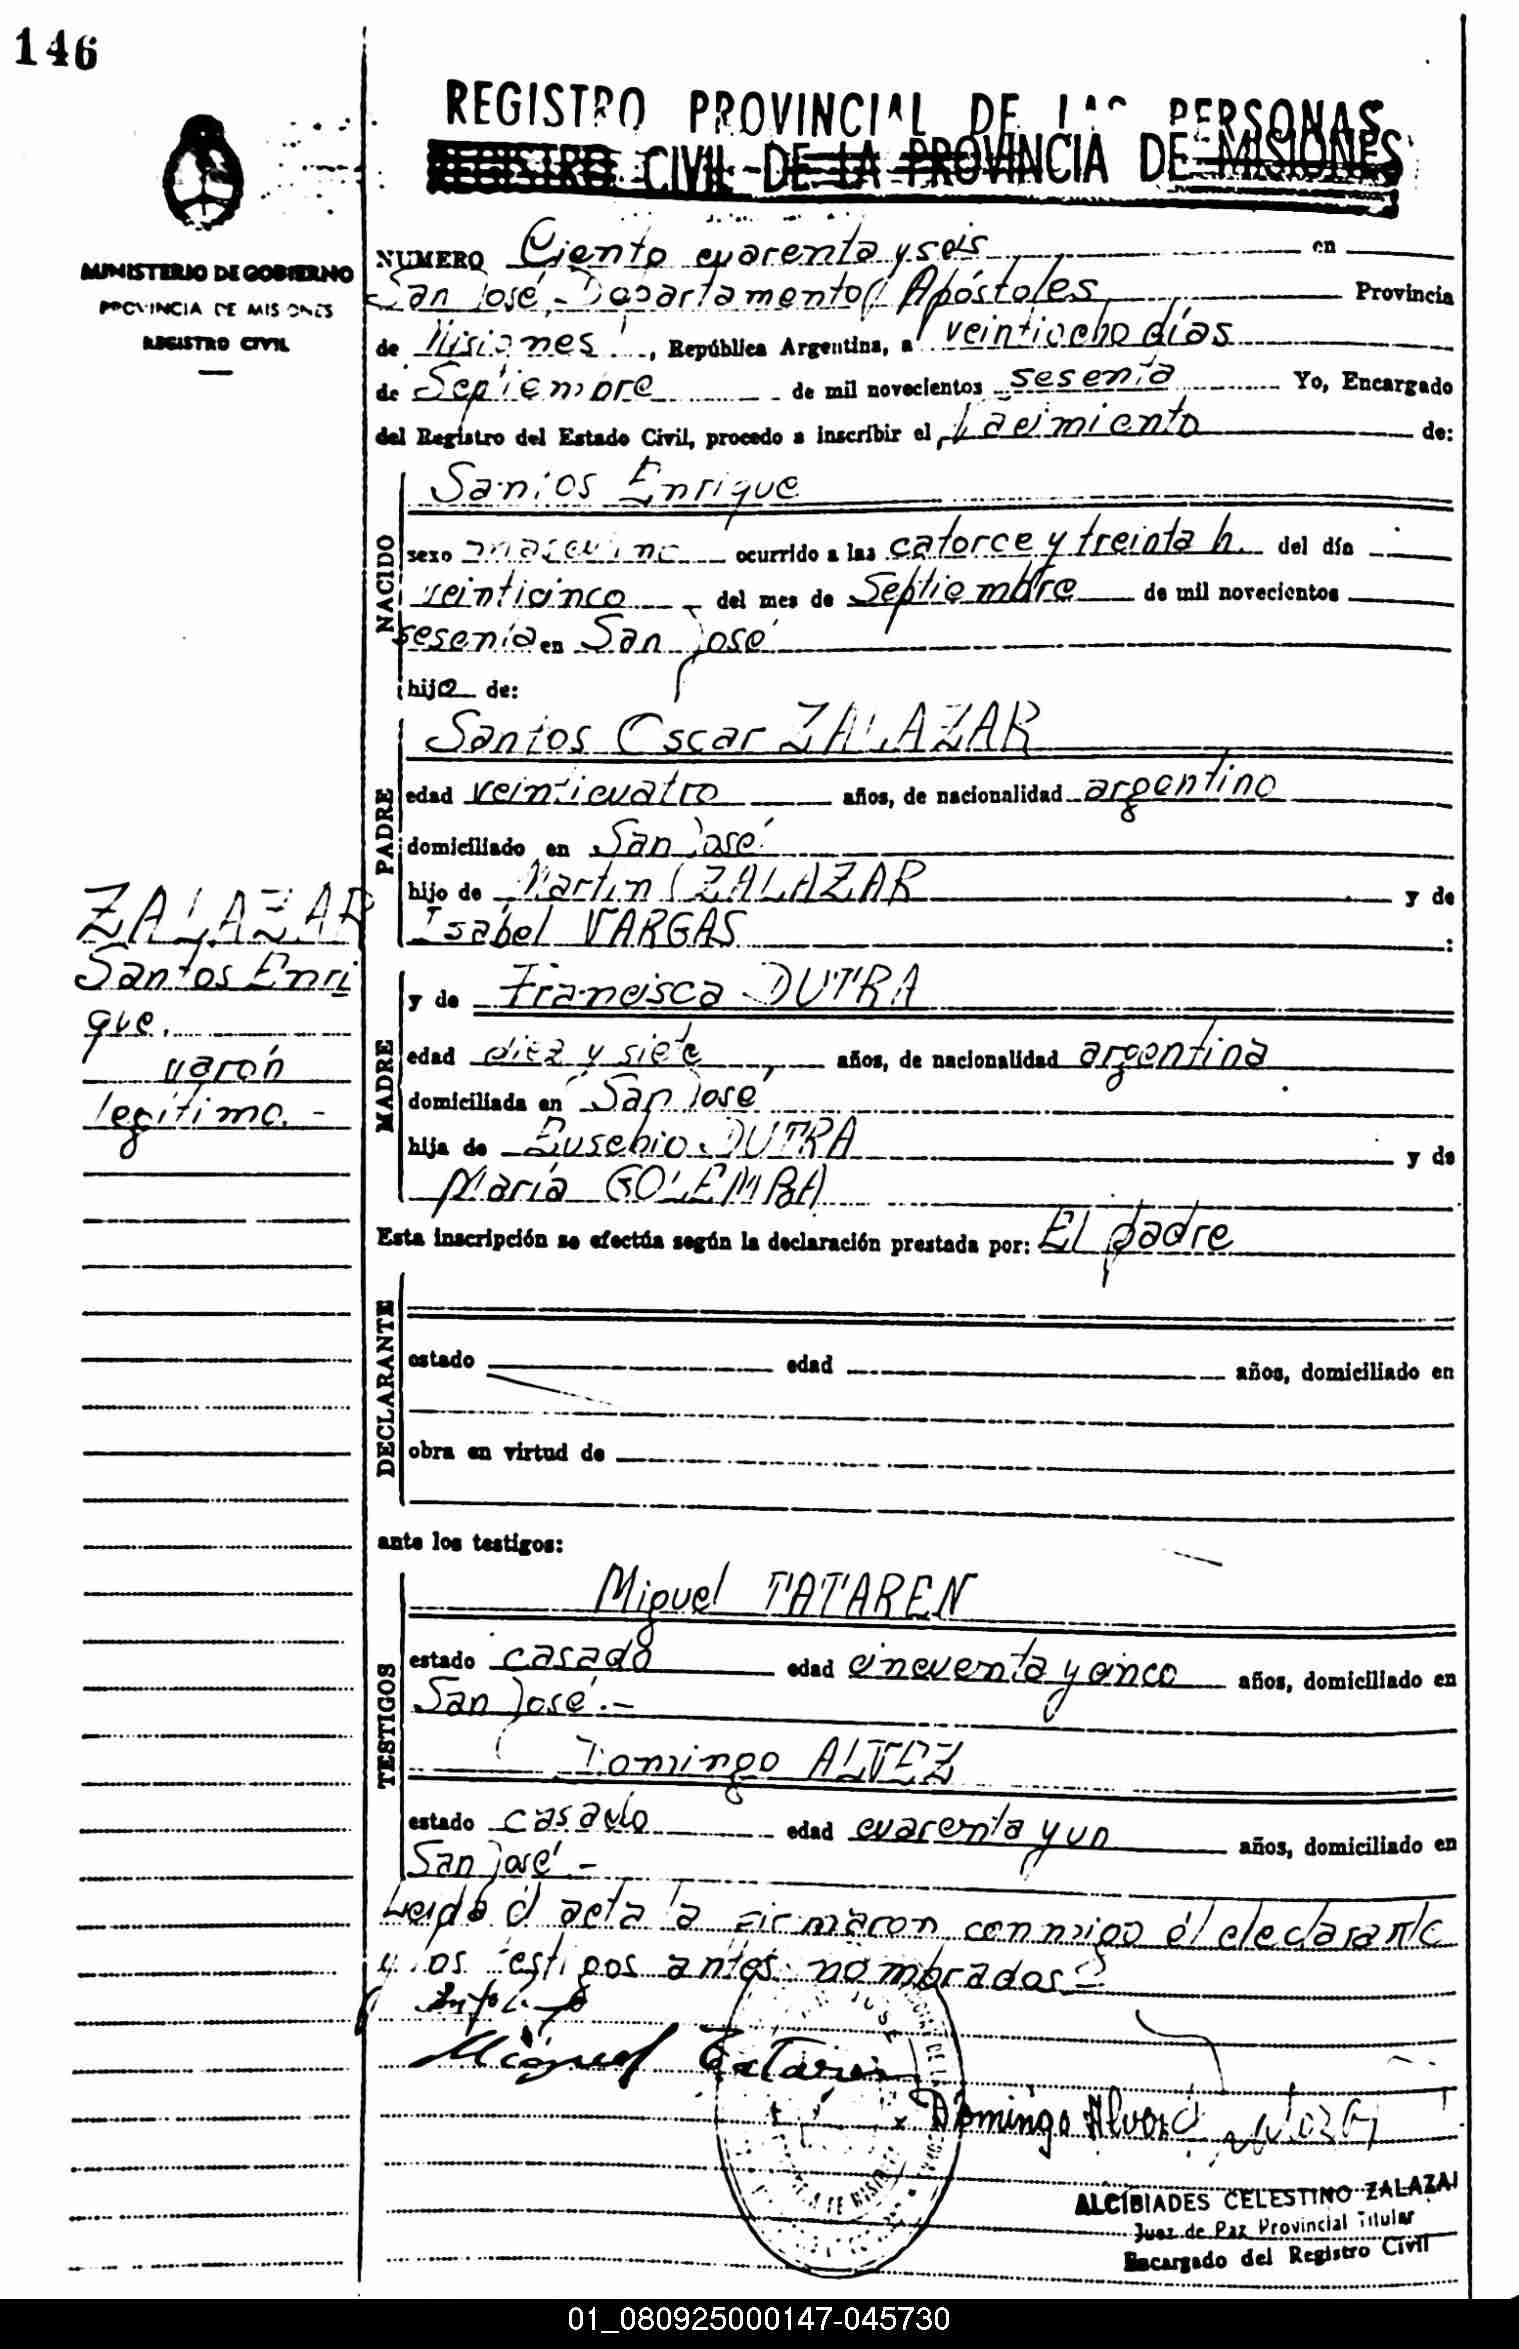 146
REGISTRO PROVINCIAL DE LAS PERSONAS
REGISTRO CIVIL DE LA PROVINCIA DE MISIONES
MINISTERIO DE GOBIERNO
PROVINCIA DE MISIONES
REGISTRO CIVIL
NUMERO Ciento cuarenta y seis en
San José, Departamento Apóstoles Provincia
de Misiones, República Argentina, a veintiocho días
de Septiembre de mil novecientos sesenta Yo, Encargado
del Registro del Estado Civil, procedo a inscribir el Nacimiento de:
NACIDO
Santos Enrique
sexo masculino ocurrido a las catorce y treinta h. del día
veinticinco del mes de Septiembre de mil novecientos
sesenta en San José
hijo de:
PADRE
Santos Oscar ZALAZAR
edad veinticuatro años, de nacionalidad argentino
domiciliado en San José
hijo de Martin ZALAZAR y de
Isabel VARGAS
ZALAZAR
Santos Enri
que.
varón
legítimo.-
MADRE
y de Francisca DUTRA
edad diez y siete años, de nacionalidad argentina
domiciliada en San José
hija de Eusebio DUTRA y de
María GOLEMBA
Esta inscripción se efectúa según la declaración prestada por: El padre
DECLARANTE
estado edad años, domiciliado en
obra en virtud de
ante los testigos:
TESTIGOS
Miguel TATAREN
estado casado edad cincuenta y cinco años, domiciliado en
San José.-
Domingo ALVEZ
estado casado edad cuarenta y un años, domiciliado en
San José.-
Leida el acta la firmaron conmigo el declarante
y los testigos antes nombrados
Miguel Tataren
Domingo Alvez
ALCIBIADES CELESTINO ZALAZAR
Juez de Paz Provincial Titular
Encargado del Registro Civil
01_080925000147-045730